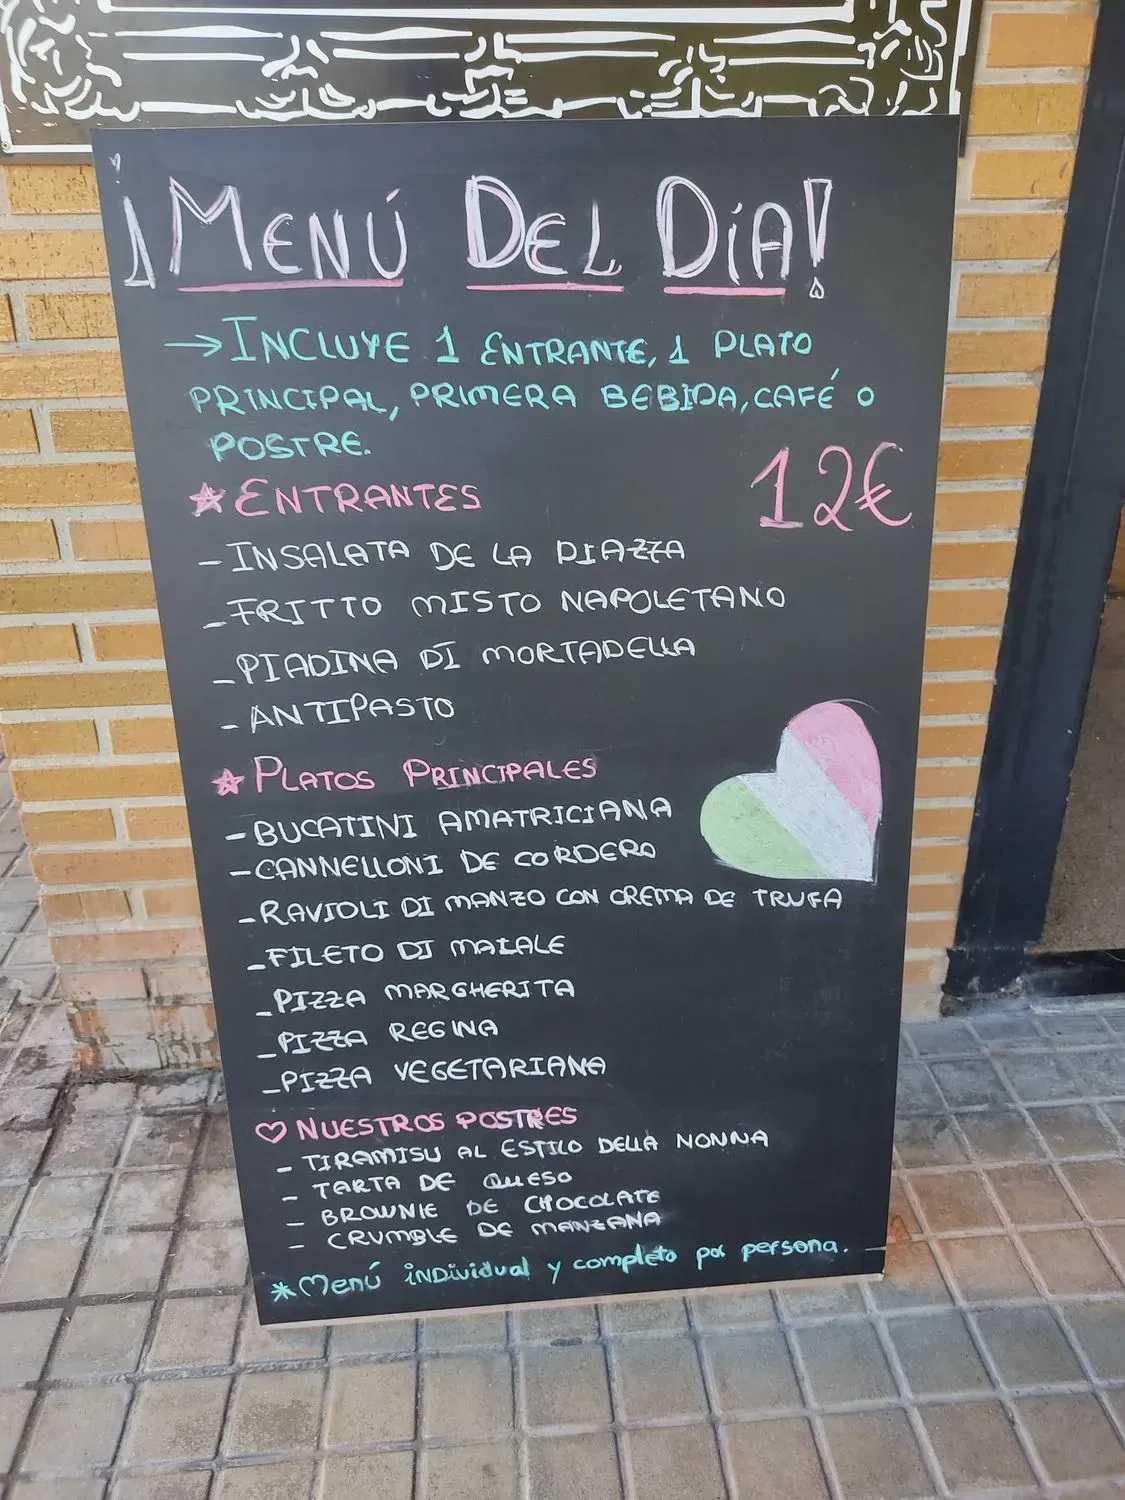 ¡MENÚ DEL DÍA!
→ INCLUYE 1 ENTRANTE, 1 PLATO
PRINCIPAL, PRIMERA BEBIDA, CAFÉ O
POSTRE.
12€
★ ENTRANTES
- INSALATA DE LA PIAZZA
- FRITTO MISTO NAPOLETANO
- PIADINA DI MORTADELLA
- ANTIPASTO
★ PLATOS PRINCIPALES
- BUCATINI AMATRICIANA
- CANNELLONI DE CORDERO
- RAVIOLI DI MANZO CON CREMA DE TRUFA
- FILETO DI MAIALE
- PIZZA MARGHERITA
- PIZZA REGINA
- PIZZA VEGETARIANA
♡ NUESTROS POSTRES
- TIRAMISU AL ESTILO DELLA NONNA
- TARTA DE QUESO
- BROWNIE DE CHOCOLATE
- CRUMBLE DE MANZANA
* Menú individual y completo por persona.